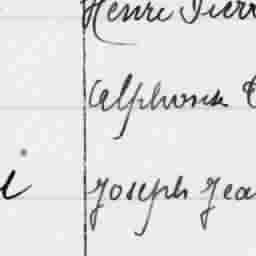 Henri Pierr
Alphonse
i Joseph Jea